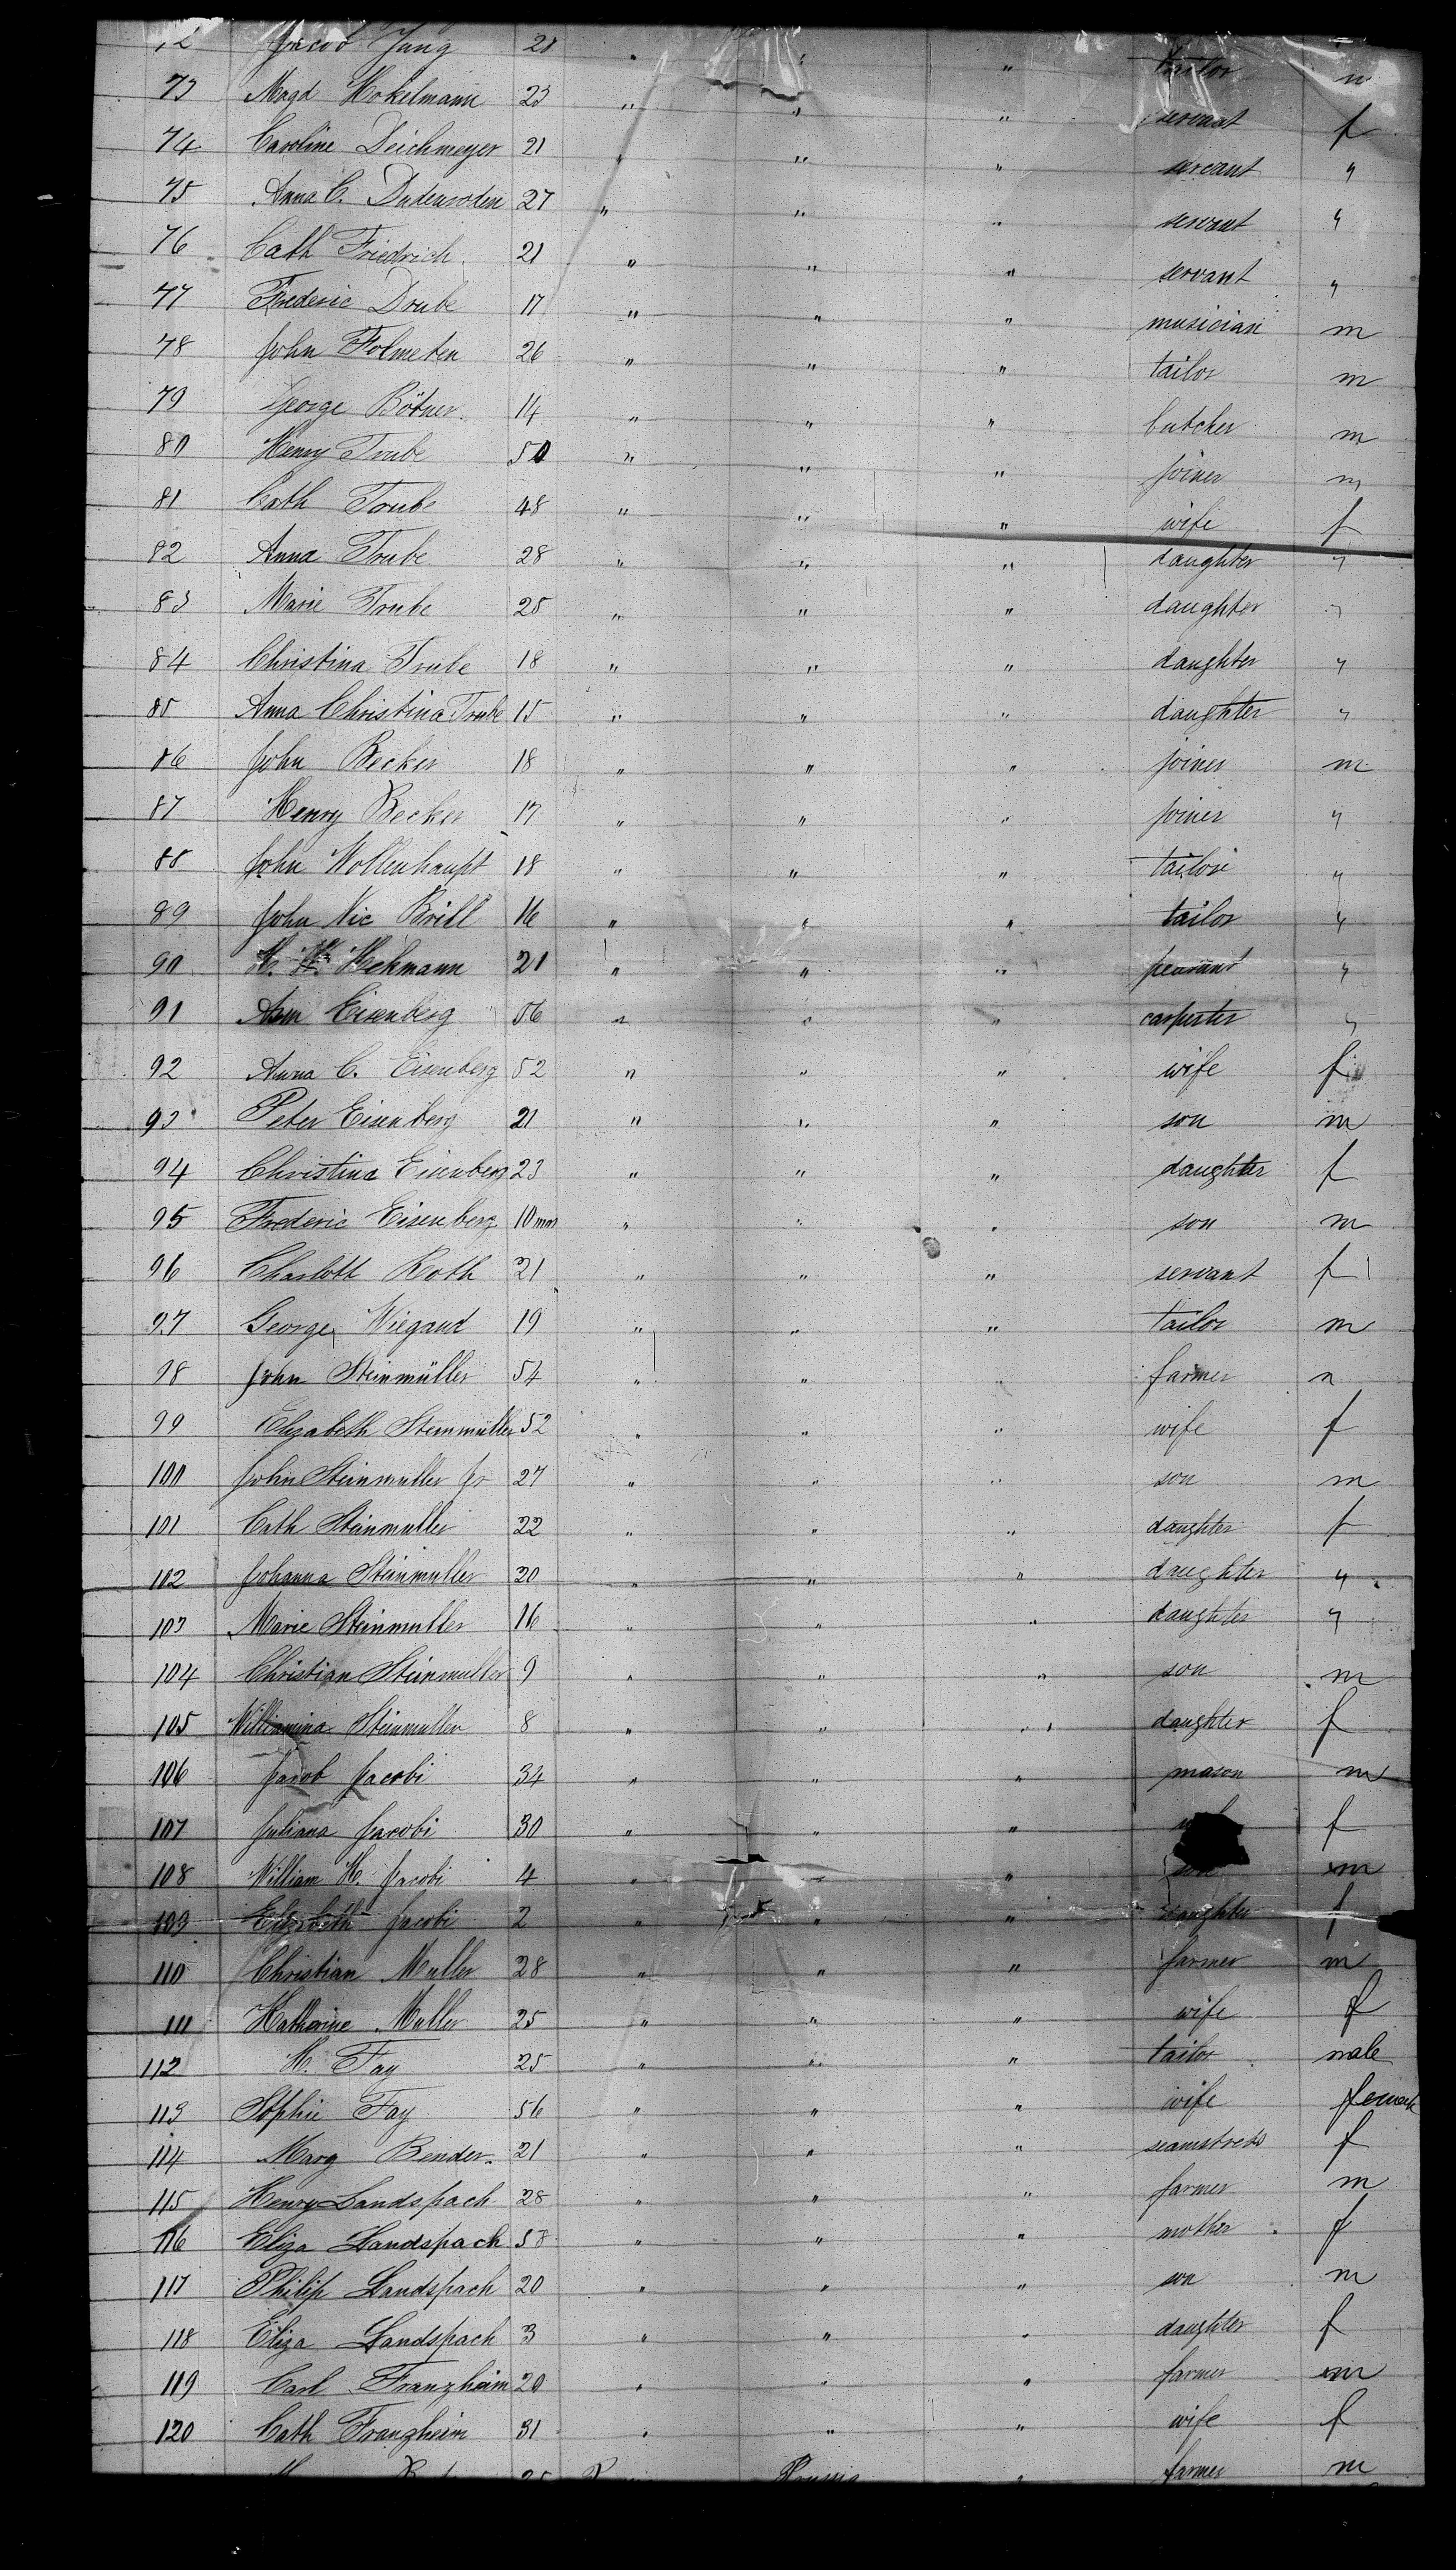 72 Jacob Jung 28 " " " tailor m
73 Magd Hokelmann 23 " " " servant f
74 Caroline Deichmeyer 21 " " " servant "
75 Anna C. Dudenroden 27 " " " servant "
76 Cath Friedrich 21 " " " servant "
77 Frederic Drube 17 " " " musician m
78 John Folmeten 26 " " " tailor m
79 George Bötner. 14 " " " butcher m
80 Henry Trube 50 " " " joiner m
81 Cath Trube 48 " " " wife f
82 Anna Trube 28 " " " daughter "
83 Marie Trube 25 " " " daughter "
84 Christina Trube 18 " " " daughter "
85 Anna Christina Trube 15 " " " daughter "
86 John Becker 18 " " " joiner m
87 Henry Becker 17 " " " joiner "
88 John Wollenhaupt 18 " " " tailor "
89 John Nic Brill 16 " " " tailor "
90 H. Hehmann 21 " " " peasant "
91 Eisenberg 56 " " " carpenter "
92 Anna C. Eisenberg 52 " " " wife f
93 Peter Eisenberg 21 " " " son m
94 Christina Eisenberg 23 " " " daughter f
95 Frederic Eisenberg 10 mos " " " son m
96 Charlott Roth 21 " " " servant f
97 George Wiegand 19 " " " tailor m
98 John Steinmüller 54 " " " farmer m
99 Elizabeth Steinmüller 52 " " " wife f
100 John Steinmuller Jr 27 " " " son m
101 Cath Steinmuller 22 " " " daughter f
102 Johanna Steinmuller 20 " " " daughter "
103 Marie Steinmuller 16 " " " daughter "
104 Christian Steinmuller 9 " " " son m
105 Williamina Steinmuller 8 " " " daughter f
106 Jacob Jacobi 34 " " " mason m
107 Juliana Jacobi 30 " " " f
108 William H. Jacobi 4 " " " son m
109 Elizabeth Jacobi 2 " " " daughter f
110 Christian Muller 28 " " " farmer m
111 Katherine Muller 25 " " " wife f
112 H. Fay 25 " " " tailor male
113 Sophie Fay 56 " " " wife female
114 Marg Bender. 21 " " " seamstress f
115 Henry Landspach 28 " " " farmer m
116 Eliza Landspach 58 " " " mother f
117 Philip Landspach 20 " " " son m
118 Eliza Landspach 3 " " " daughter f
119 Carl Franzheim 20 " " " farmer m
120 Cath Franzheim 31 " " " wife f
25 Prussia " farmer m